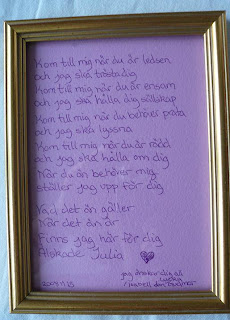 Kom till mig när du är ledsen
och jag ska trösta dig
Kom till mig när du är ensam
och jag ska hålla dig sällskap
Kom till mig när du behöver prata
och jag ska lyssna
Kom till mig när du är rädd
och jag ska hålla om dig
När du än behöver mig
ställer jag upp för dig
Vad det än gäller
När det än är
Finns jag här för dig
Älskade Julia
jag önskar dig all
lycka